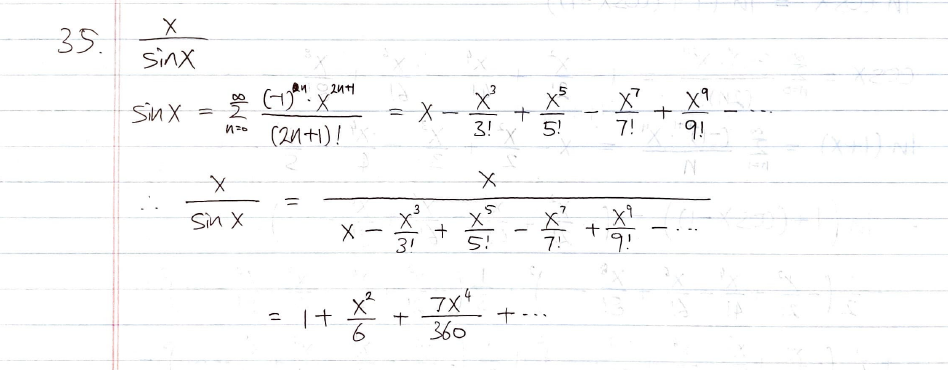 35. x / sin x
sin x = ∑_{n=0}^{∞} (-1)^{n} · x^{2n+1} / (2n+1)! = x - x^3/3! + x^5/5! - x^7/7! + x^9/9! - ...
∴ x / sin x = x / (x - x^3/3! + x^5/5! - x^7/7! + x^9/9! - ...)
= 1 + x^2/6 + 7x^4/360 + ...